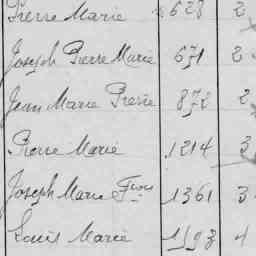 Pierre Marie 628 2
Joseph Pierre Marie 671 2
Jean Marie Pierre 872 2
Pierre Marie 1214 3
Joseph Marie Fçois 1361 3
Louis Marie 1593 4